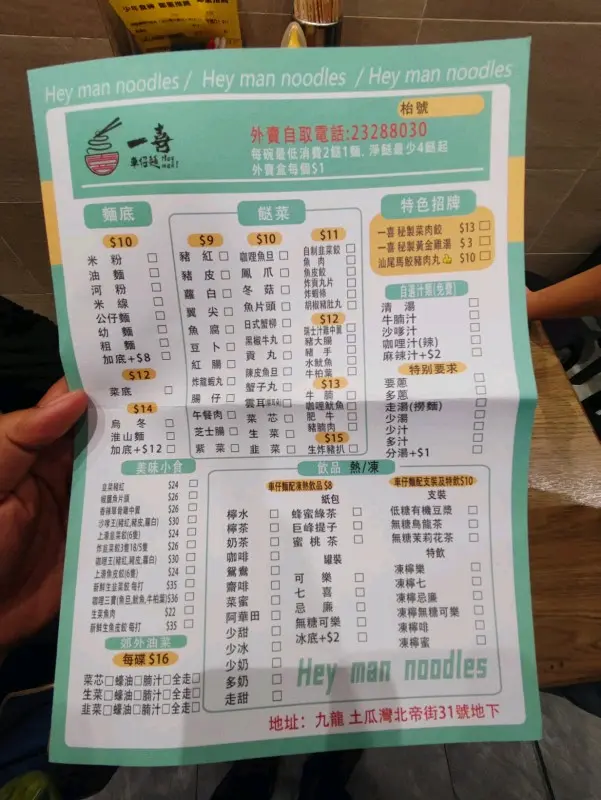 Hey man noodles / Hey man noodles / Hey man noodles
枱號
一喜
車仔麵 Hey man!
外賣自取電話:23288030
每碗最低消費2餸1麵, 淨餸最少4餸起
外賣盒每個$1
麵底
$10
米粉 □
油麵 □
河粉 □
米線 □
公仔麵 □
幼麵 □
粗麵 □
加底+$8 □
$12
菜底 □
$14
烏冬 □
淮山麵 □
加底+$12 □
餸菜
$9
豬紅 □
豬皮 □
蘿白 □
翼尖 □
魚腐 □
豆卜 □
紅腸 □
炸龍蝦丸 □
腸仔 □
午餐肉 □
芝士腸 □
紫菜 □
$10
咖哩魚旦 □
鳳爪 □
冬菇 □
魚片頭 □
日式蟹柳 □
黑椒牛丸 □
貢丸 □
陳皮魚旦 □
蟹子丸 □
雲耳 □
菜芯 □
生菜 □
韭菜 □
$11
自制韭菜餃 □
魚肉 □
魚皮餃 □
炸貢丸片 □
炸蝦條 □
胡椒豬肚丸 □
$12
瑞士汁雞中翼 □
豬大腸 □
豬手 □
水魷魚 □
牛柏葉 □
$13
牛腩 □
咖哩魷魚 □
肥牛 □
豬腩肉 □
$15
生炸豬扒 □
特色招牌
一喜 秘製菜肉餃 $13 □
一喜 秘製黃金雞湯 $ 3 □
汕尾馬鮫豬肉丸 $10 □
自選汁類(免費)
清湯 □
牛腩汁 □
沙嗲汁 □
咖哩汁(辣) □
麻辣汁+$2 □
特別要求
要蔥 □
多蔥 □
走湯(撈麵) □
少湯 □
少汁 □
多汁 □
分湯+$1 □
美味小食
韭菜豬紅 $24 □
椒鹽魚片頭 $26 □
香辣單骨雞中翼 $28 □
沙嗲王(豬紅,豬皮,蘿白) $30 □
上湯韭菜餃(6隻) $24 □
炸韭菜餃3隻18/5隻 $26 □
咖哩王(豬紅,豬皮,蘿白) $30 □
上湯魚皮餃(6隻) $24 □
新鮮生韭菜餃 每打 $35 □
咖哩三寶(魚旦,魷魚,牛柏葉) $36 □
生菜魚肉 $22 □
新鮮生魚皮餃 每打 $35 □
郊外油菜
每碟 $16
菜芯□蠔油□腩汁□全走□
生菜□蠔油□腩汁□全走□
韭菜□蠔油□腩汁□全走□
飲品 熱/凍
車仔麵配凍熱飲品$8
檸水 □
檸茶 □
奶茶 □
咖啡 □
鴛鴦 □
齋啡 □
菜蜜 □
阿華田 □
少甜 □
少冰 □
少奶 □
多奶 □
走甜 □
紙包
蜂蜜綠茶 □
巨峰提子 □
蜜桃茶 □
罐裝
可樂 □
七喜 □
忌廉 □
無糖可樂 □
冰底+$2 □
車仔麵配支裝及特飲$10
支裝
低糖有機豆漿 □
無糖烏龍茶 □
無糖茉莉花茶 □
特飲
凍檸樂 □
凍檸七 □
凍檸忌廉 □
凍檸無糖可樂 □
凍檸啡 □
凍檸蜜 □
Hey man noodles
地址: 九龍 土瓜灣北帝街31號地下